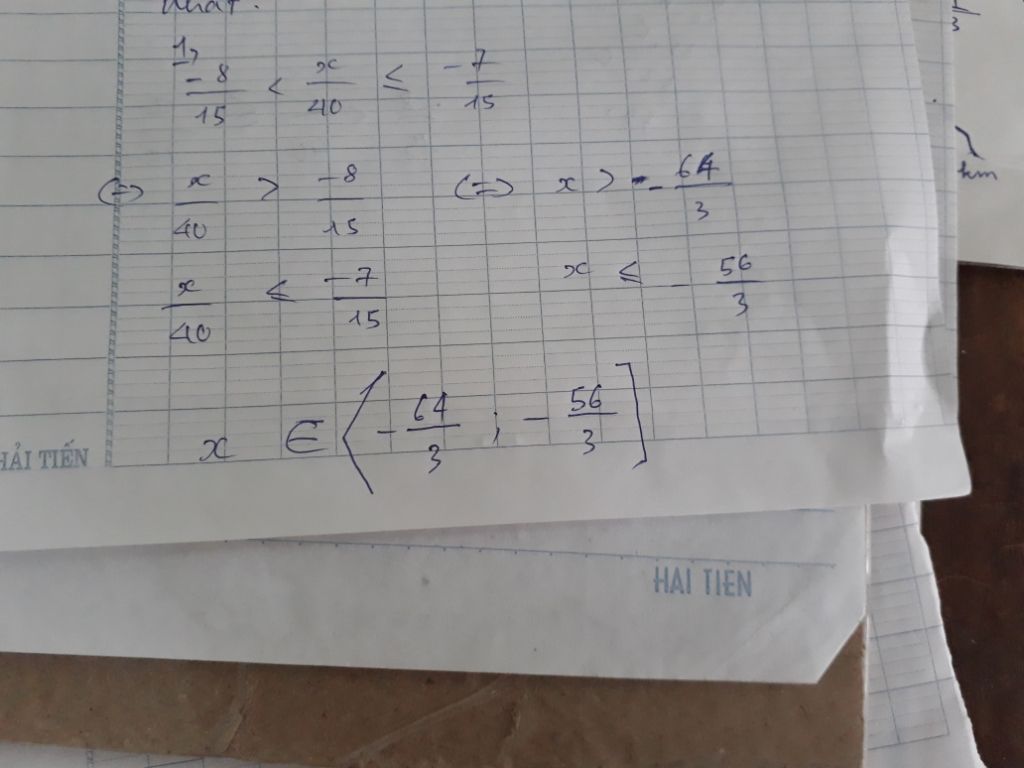 nhất.
1,
-8/15 < x/40 ≤ -7/15
(=) x/40 > -8/15 (=) x > -64/3
x/40 ≤ -7/15 x ≤ -56/3
x ∈ (-64/3 ; -56/3]
HẢI TIẾN
HẢI TIẾN
3
km